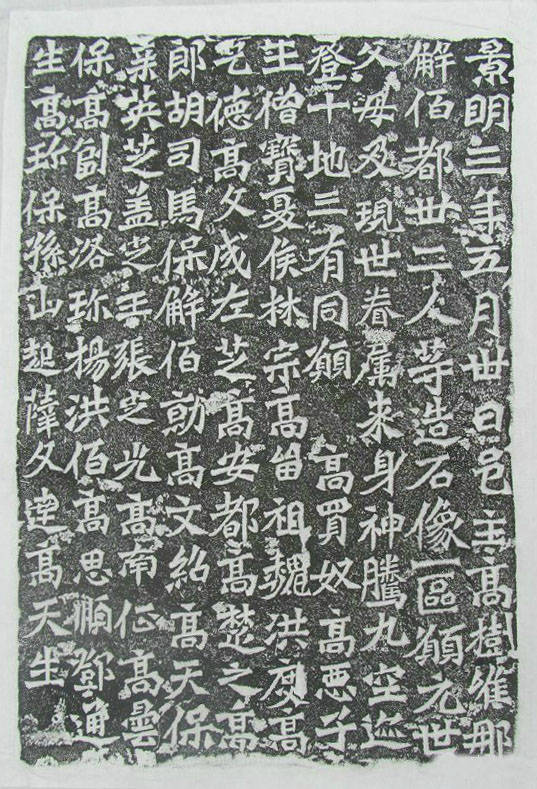 景明三年五月卅日邑主高樹維那
解佰都卅二人等造石像一區願元世
父母及現世眷属来身神騰九空迹
登十地三有同願高買奴高悪子
王僧寶夏侯林宗高留祖魏洪度高
乞德高文成左芝高安都高楚之高
郎胡司馬保解佰勍高文紹高天保
英芝盖定王張定光高南征高曇
保高副高洛珎楊洪佰高思順鄧通
生高珎保孫山起薛文達高天生